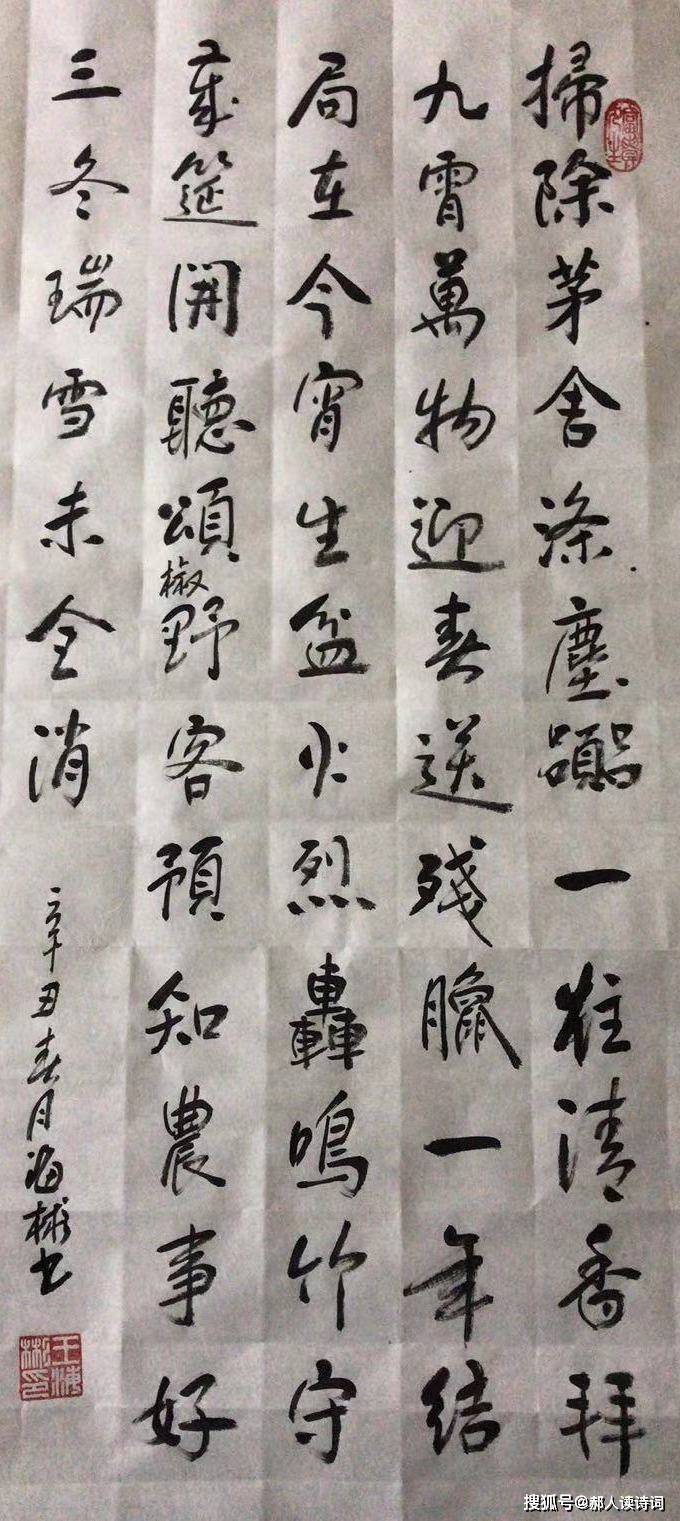 掃除茅舍滌塵嚻一炷清香拜
九霄萬物迎春送殘臘一年結
局在今宵生盆火烈轟鳴竹守
歲筵開聽頌椒野客預知農事好
三冬瑞雪未全消
辛丑春月海彬书
王海彬印
搜狐号@郝人读诗词